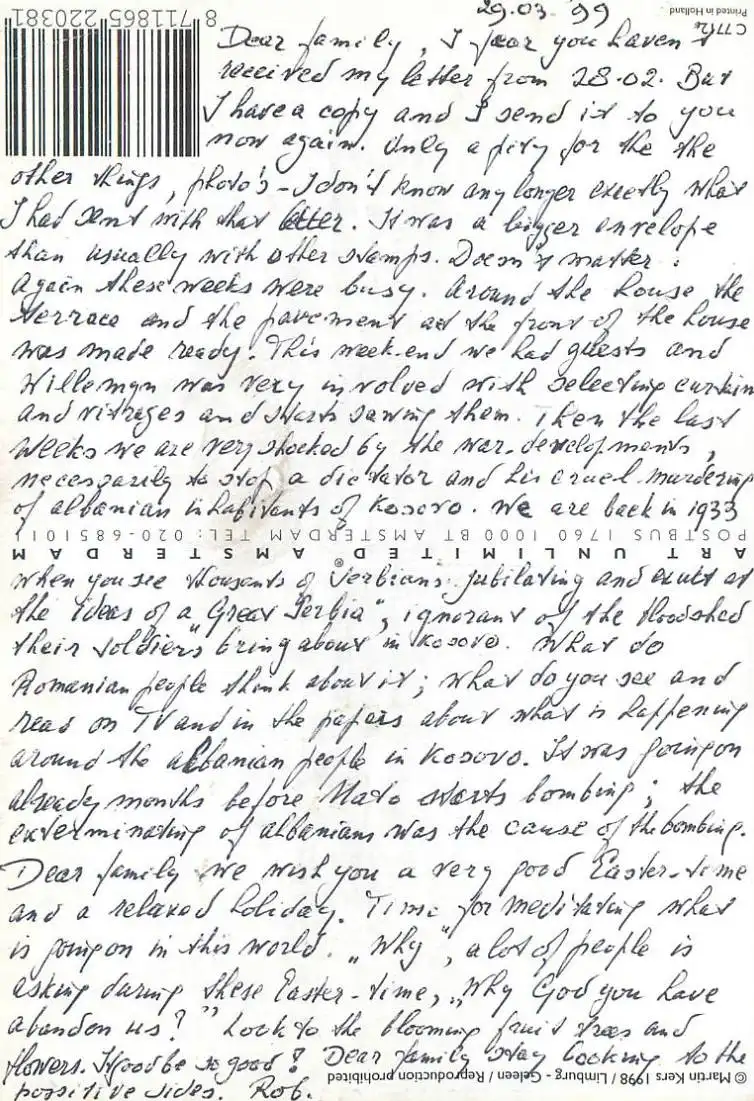 29.03.'99
Printed in Holland
C777/2e
8 711865 220381
Dear family, I fear you haven't
received my letter from 28.02. But
I have a copy and I send it to you
now again. Only a pity for the the
other things, photo's - I don't know any longer exactly what
I had sent with that letter. It was a bigger envelope
than usually with other stamps. Doesn't matter.
Again these weeks were busy. Around the house the
terrace and the pavement at the front of the house
was made ready. This week-end we had guests and
Willemyn was very involved with selecting curtain
and vitrages and starts sawing them. Then the last
weeks we are very shocked by the war-developments,
necessarily to stop a dictator and his cruel murdering
of albanian inhabitants of Kosovo. We are back in 1933
POSTBUS 1760 1000 BT AMSTERDAM TEL: 020-6851011
ART UNLIMITED® AMSTERDAM
when you see thousants of Serbians jubilating and exult at
the ideas of a „Great Serbia", ignorant of the bloodshed
their soldiers bring about in Kosovo. What do
Romanian people think about it; what do you see and
read on TV and in the papers about what is happening
around the albanian people in Kosovo. It was going on
already months before Nato starts bombing; the
exterminating of albanians was the cause of the bombing.
Dear family we wish you a very good Easter-time
and a relaxed holiday. Time for meditating what
is going on in this world. „Why", a lot of people is
asking during these Easter-time, „Why God you have
abandon us?" Look to the blooming fruit trees and
flowers. be so good! Dear family stay looking to the
possitive sides. Rob.
© Martin Kers 1998 / Limburg - Geleen / Reproduction prohibited